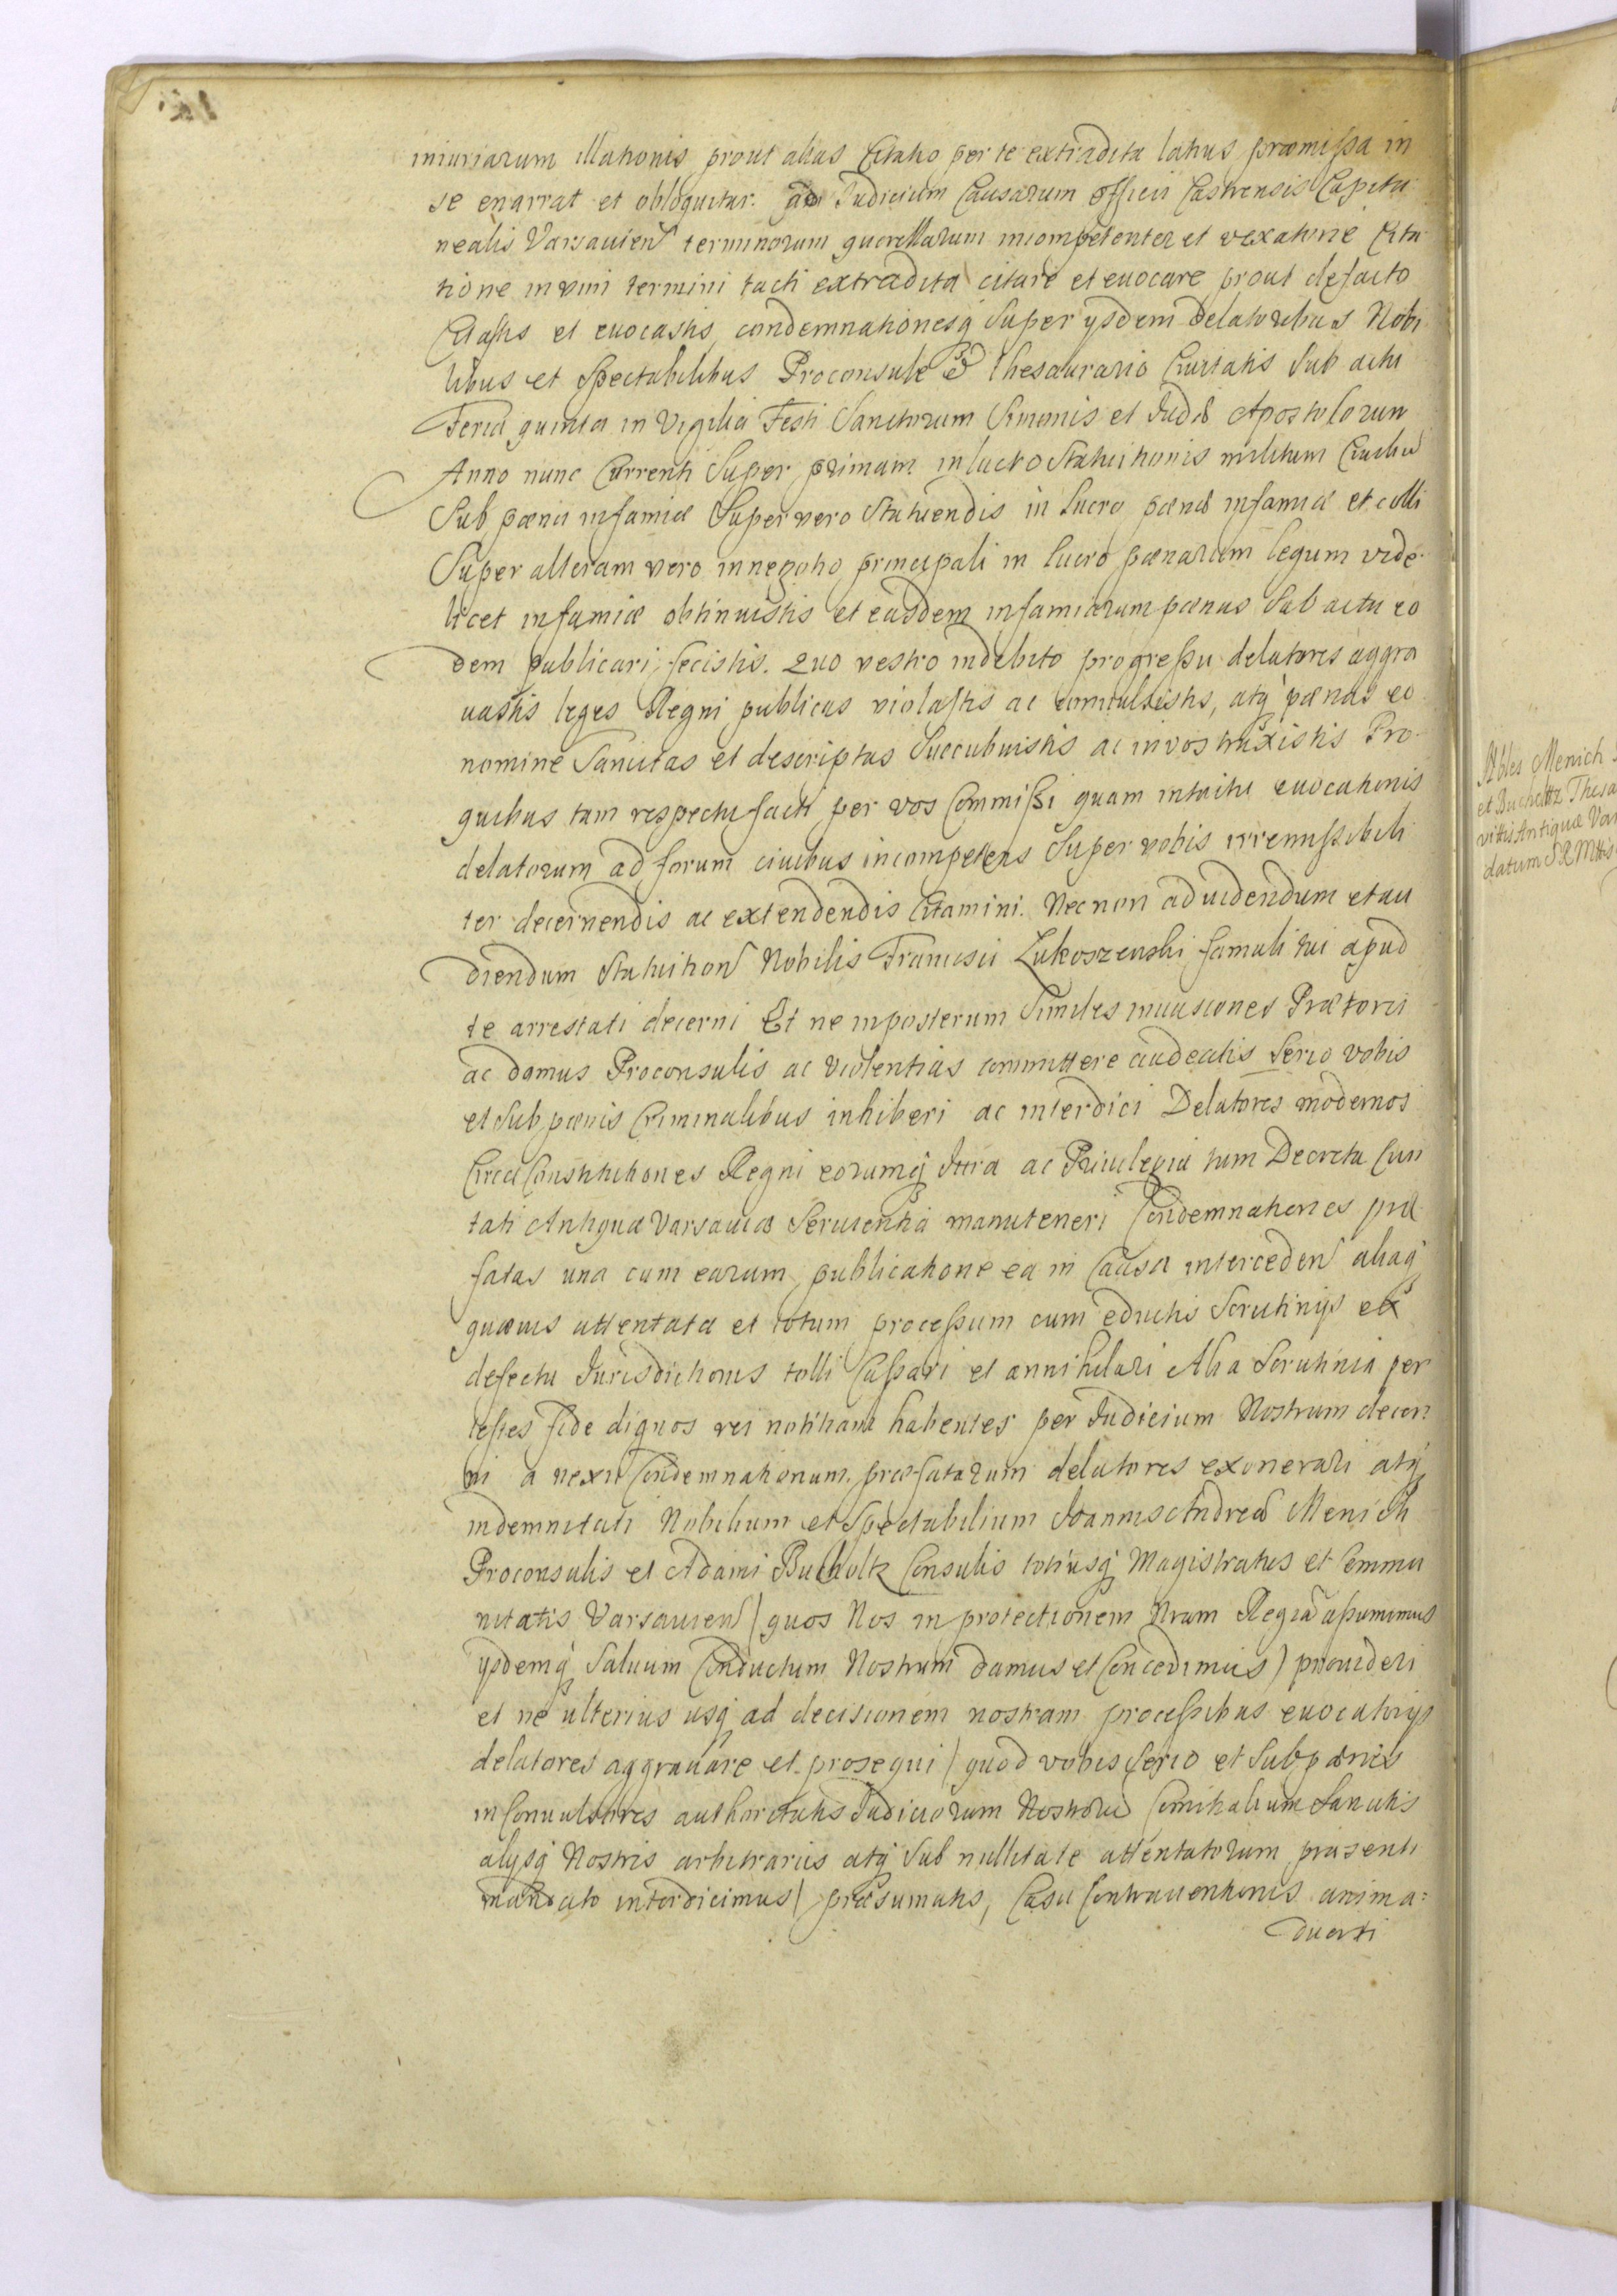 iniuriarum illationis prout alias Citatio per te extradita latius præmissa in
se enarrat et obloquitur. ad Judicium Causarum Officii Castrensis Capita
nealis Varsavien terminorum querellarum incompetenter et vexatorie Cita
tione in vim termini tacti extradita citare et evocare prout defacto
Citastis et evocastis, condemnationesq super ijsdem Delatoribus Nobi
libus et Spectabilibus Proconsule et Thesaurario Civitatis sub actu
Feria quinta in Vigilia Festi Sanctorum Simonis et Judæ Apostolorum
Anno nunc Currenti Super primam in lucro Statuitionis militum Civibu
Sub pæna infamiæ Super vero Statuendis in lucro pænæ infamiæ et colli
Super alteram vero in negotio principali in lucro pænarum legum vide
licet infamiæ obtinuistis et easdem infamiarum pænas sub actu eo
dem publicari fecistis. Quo vestro indebito progressu delatores aggra
vastis leges Regni publicas violastis ac convulsistis, atq pænas eo
nomine Sancitas et descriptas Succubuistis ac in vos traxistis Pro
quibus tam respectu facti per vos Commissi quam intuitu evocationis
delatorum ad forum civibus incompetens Super vobis irremissibili
ter decernendis ac extendendis Citamini. Necnon ad videndum et au
diendum Statuition Nobilis Francisci Lukoszewski famuli tui apud
te arrestati decerni Et ne imposterum Similes invasiones Prætorii
ac domus Proconsulis ac violentias committere audeatis Serio vobis
et Sub pænis Criminalibus inhiberi ac interdici Delatores modernos
Circa Constitutiones Regni eorumq Jura ac Privilegia tum Decreta Civi
tati Antiquæ Varsaviæ Servientia manuteneri Condemnationes præ
fatas una cum earum publicatione ea in Causa interceden aliaq
quævis attentata et totum processum cum eductis Scrutinijs ex
defectu Jurisdictionis tolli Cassari et annihilari Alia Scrutinia per
testes fide dignos rei notitiam habentes per Judicium Nostrum decer
ni a nexu Condemnationum præfatarum delatores exonerari atq
indemnitati Nobilium et Spectabilium Joannis Andreæ Menich
Proconsulis et Adami Bucholtz Consulis totiusq Magistratus et Commu
nitatis Varsavien (quos Nos in protectionem Nram Regia assumimus
ijsdemq Salvum Conductum Nostrum damus et Concedimus) provideri
et ne ulterius usq ad decisionem nostram processibus evocatorijs
delatores aggravare et prosequi (quod vobis serio et Sub pænis
in Convulsores authoritatis Judiciorum Nostroru Comitialium Sancitis
alijsq Nostris arbitrariis atq Sub nullitate attentatorum præsenti
mandato interdicimus) præsumatis, Casu Contraventionis anima=
dverti
Ables Menich
et Bucholtz Thesa
vittis Antiquæ Var
datum S R Mttis